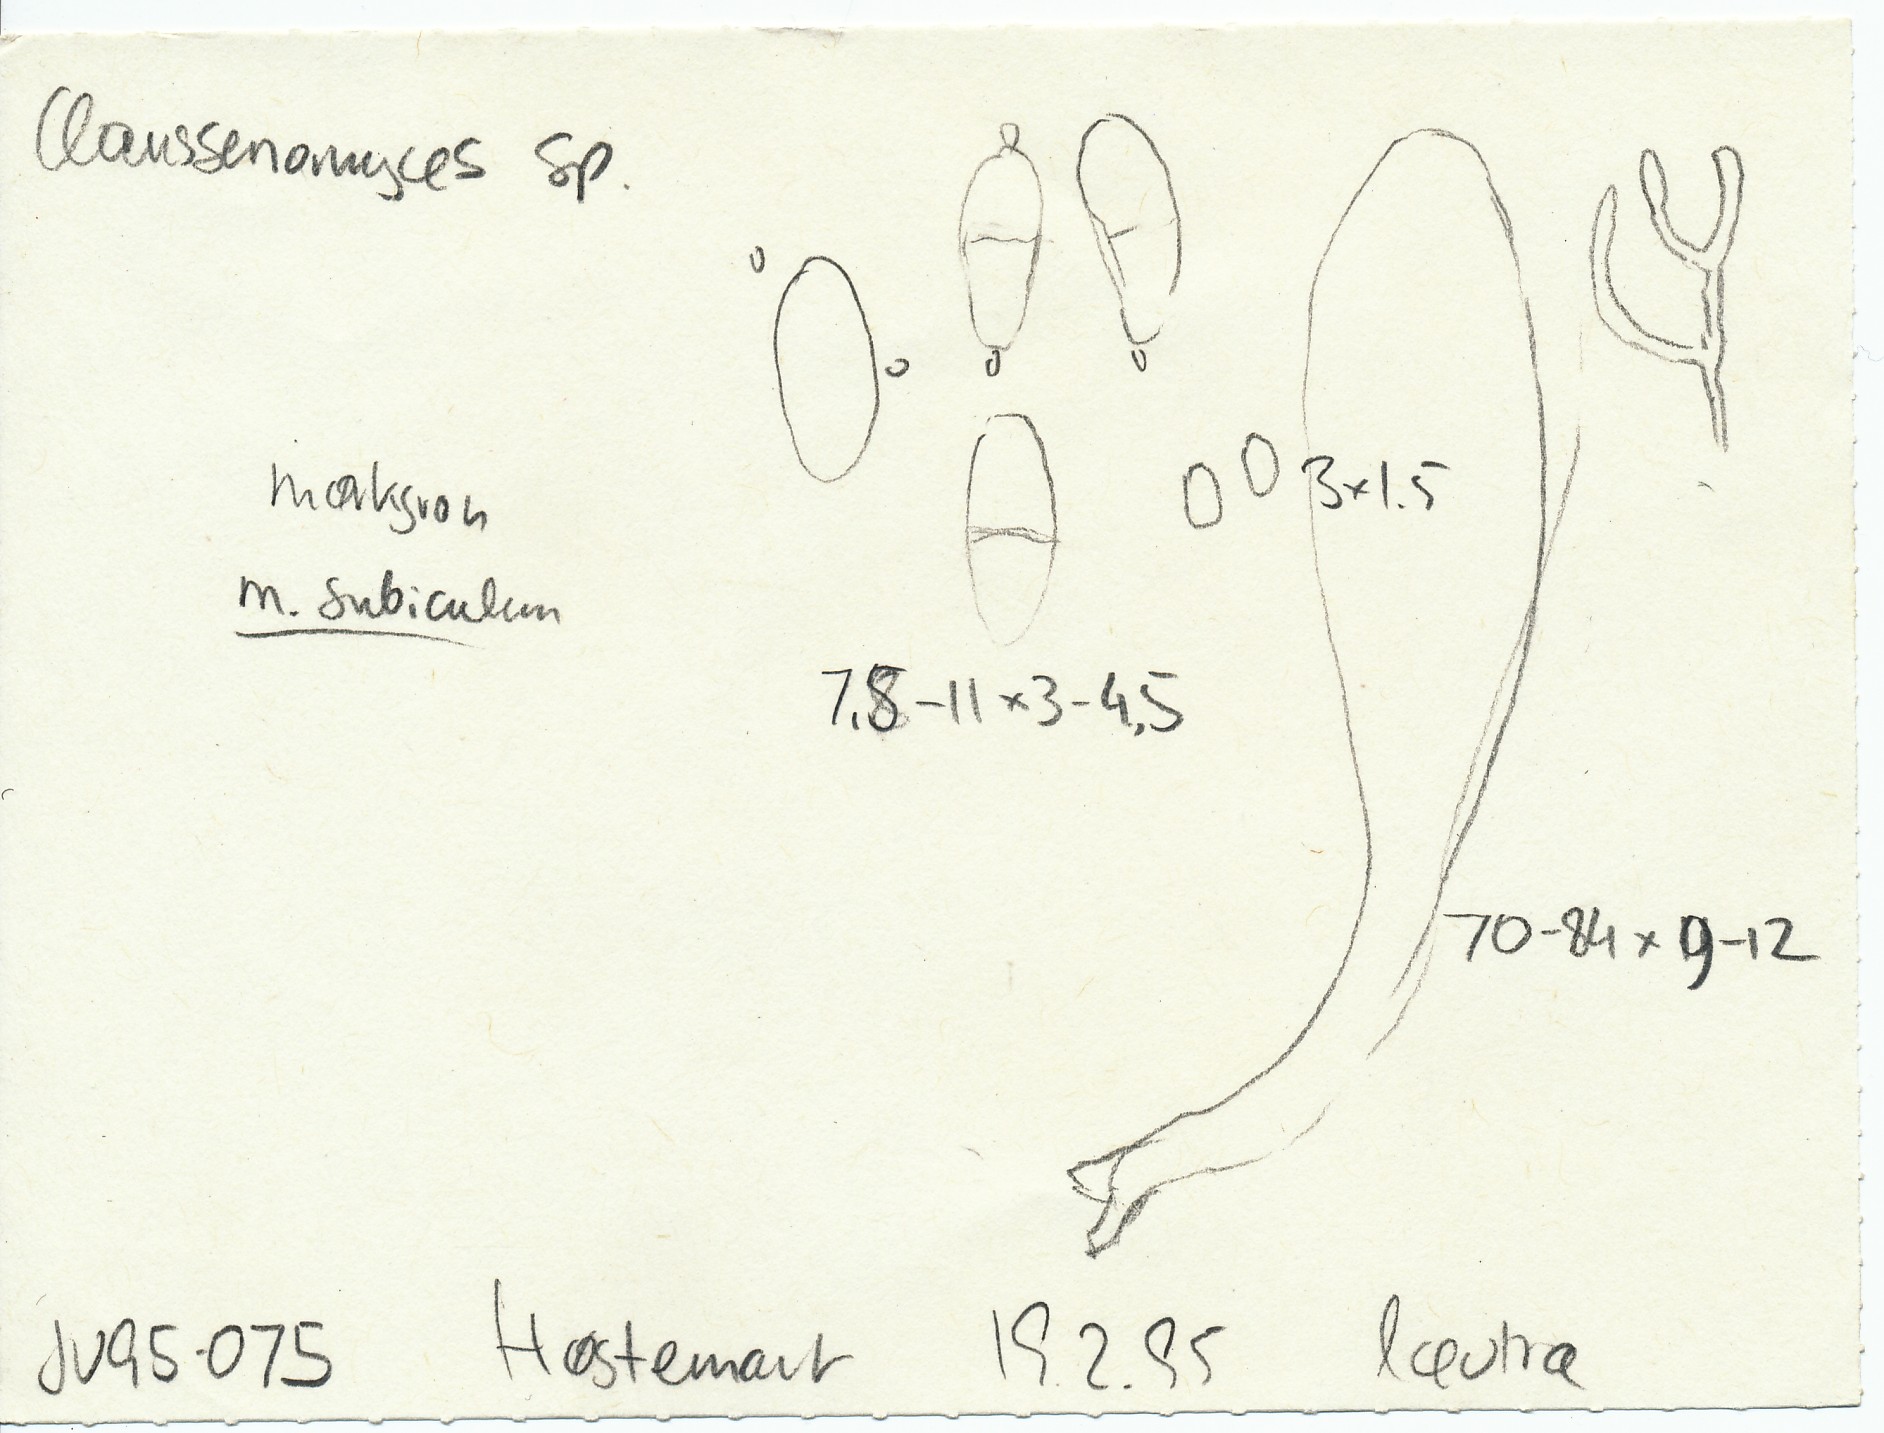 Claussenomyces sp.
mørkgrøn
m. subiculum
3×1.5
7,8-11×3-4,5
70-84×9-12
JV95-075 Høstemark 19.2.95 løvtræ